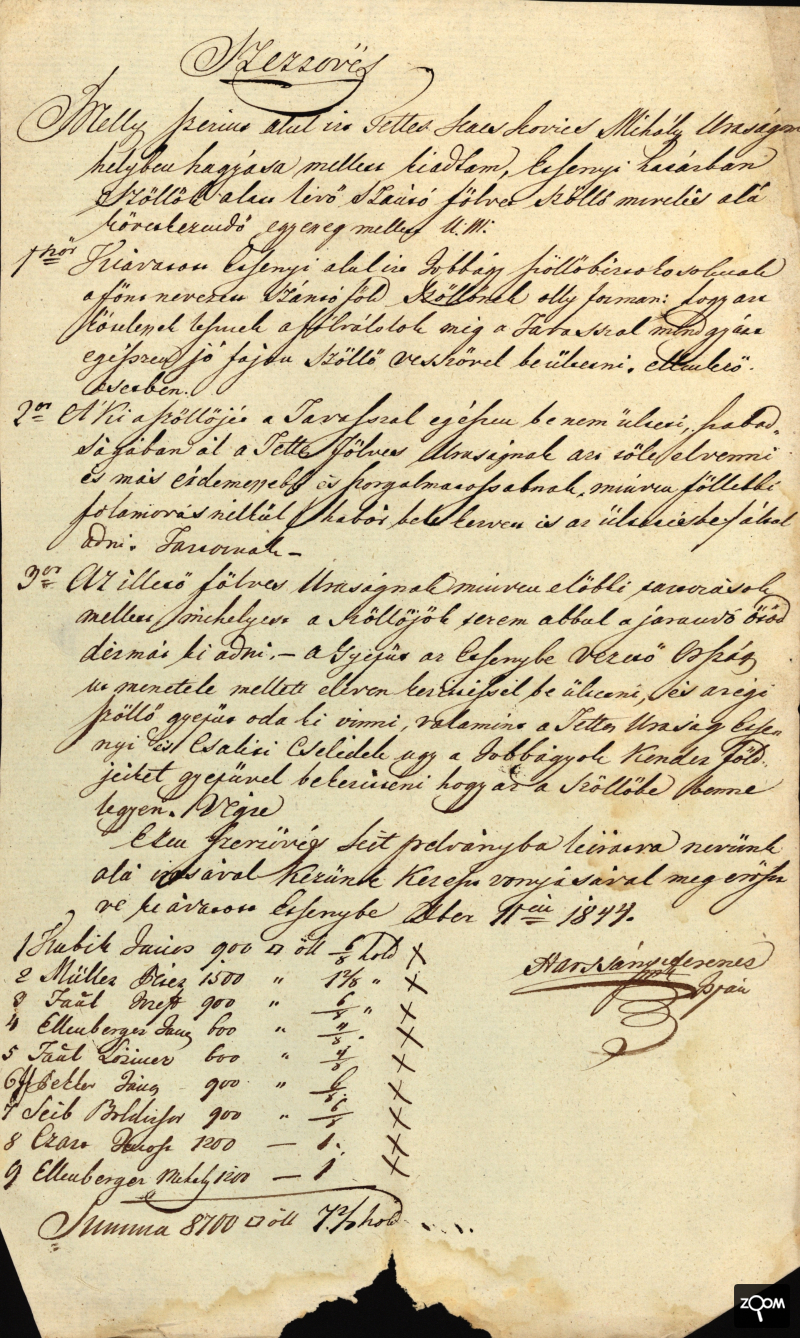 Szerzövés
Melly szerint alul irt Tettes Kacskovics Mihály Uraságnak
helyben hagyása mellett kiadtam, Essenyi határban
Szöllök alatt lévö Szántó fölvet Szöllö mivelés alá
következendö egyezség mellett U:M:
1ször Kiávatott Essenyi alul irt Jobbágy szöllöbirtokosoknak
a fönt nevezett Szántó föld Szöllönek olly forman: hogy azt
kötelesek lesznek a fölválolok még a Tavasszal mindgyárt
egészen jó fajtu Szöllö veszövel be ültetni. ellenkezö
esetben.
2or A Ki a szöllöjét a Tavasszal egészen be nem ülteti, szabad-
ságában ál a Tettes Fölves Uraságnak azt töle elvenni
és más érdemesebb és szorgalmatossabnak, minden föllebbi
folamorás nélkül / habár bele kerven is az ültetésbe / által
adni. Tartoznak –
3or Az illetö fölves Uraságnak minden elöbbi tartozások
mellett, mihelyest a Szöllöjök terem abbul a járandó ötöd
dézmát ki adni. – a Gyepüt az Essenybe vezetö Ország
ut menetele mellett eleven kerittéssel be ültetni, és a régi
szöllö gyepüt oda ki vinni, valamint a Tettes Uraság Esse-
nyi és Csaliti Cselédek ugy a Jobbágyok Kender föld-
jeiket gyepüvel bekeriteni hogy az a Szöllöbe benne
legyen. Végre
Ezen szerzövés két pelványba leiratva nevünk
alá irásával Kezünk Kereszt vonyásával meg erösit
ve kiávatott Essenybe Xber 11én 1844.
1 Kubik János 900 □ öll 6/8 hold x
2 Müller 1500 " 1 2/8 " x
3 Taül Josep 900 " 6/8 " x
4 Ellenberger János 600 " 4/8 " x
5 Taül Lörincz 600 " 4/8 x
6 Bekler János 900 " 6/8 x
7 Seib Boldisor 900 " 6/8 x
8 1200 — 1. x
9 Ellenberger Mihaly 1200 — 1 x
Harsányi Ferencz
Ispán
Summa 8700 □ öll 7 2/8 hold ....
ZOOM